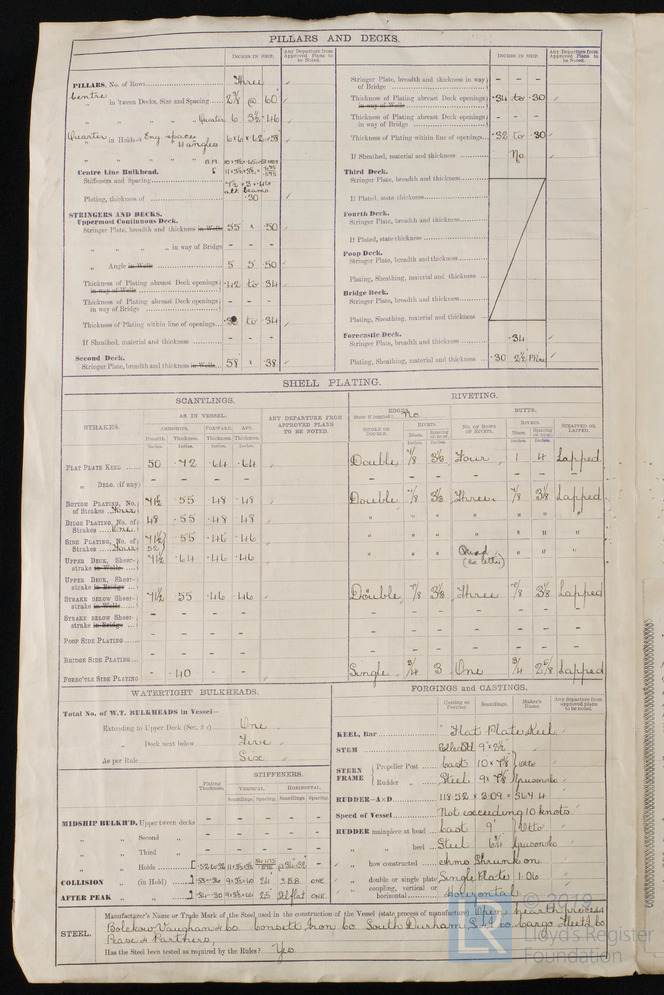 PILLARS AND DECKS.
INCHES IN SHIP.
Any Departure from Approved Plans to be Noted.
PILLARS, No. of Rows Three
Centre " in 'tween Decks, Size and Spacing 2⅞ @ 60
" " " " Quarter 6 3½ ·46
Quarter " in Holds " Eng. spaces 4 angles 6×6×·62
Centre Line Bulkhead.
Stiffeners and Spacing
alt beams
Plating, thickness of ·30
STRINGERS AND DECKS.
Uppermost Continuous Deck.
Stringer Plate, breadth and thickness in Wells 55 × ·50
" " " " in way of Bridge - - -
" Angle in Wells 5 5 ·50
Thickness of Plating abreast Deck openings in way of Wells ·42 to ·34
Thickness of Plating abreast Deck openings in way of Bridge - - -
Thickness of Plating within line of openings to ·34
If Sheathed, material and thickness - - -
Second Deck.
Stringer Plate, breadth and thickness in Wells 58 × ·38
INCHES IN SHIP.
Any Departure from Approved Plans to be Noted.
Stringer Plate, breadth and thickness in way of Bridge - - -
Thickness of Plating abreast Deck openings in way of Wells ·34 to ·30
Thickness of Plating abreast Deck openings in way of Bridge - - -
Thickness of Plating within line of openings ·32 to ·30
If Sheathed, material and thickness No
Third Deck.
Stringer Plate, breadth and thickness
If Plated, state thickness
Fourth Deck.
Stringer Plate, breadth and thickness
If Plated, state thickness
Poop Deck.
Stringer Plate, breadth and thickness
Plating, Sheathing, material and thickness
Bridge Deck.
Stringer Plate, breadth and thickness
Plating, Sheathing, material and thickness
Forecastle Deck.
Stringer Plate, breadth and thickness ·34
Plating, Sheathing, material and thickness ·30 2½ Pine
SHELL PLATING.
SCANTLINGS.
RIVETING.
STRAKES.
AS IN VESSEL.
AMIDSHIPS. FORWARD. AFT.
Breadth. Thickness. Thickness. Thickness.
Inches. Inches. Inches. Inches.
ANY DEPARTURE FROM APPROVED PLANS TO BE NOTED.
EDGES.
State if joggled? No
SINGLE OR DOUBLE.
RIVETS.
Diam. Spacing cr. to cr.
BUTTS.
No. of Rows of Rivets.
RIVETS.
Diam. Spacing cr. to cr.
STRAPPED OR LAPPED.
FLAT PLATE KEEL 50 ·72 ·64 ·64 Double 7/8 3½ Four 1 4 Lapped
" DBLG. (if any) - - - -
BOTTOM PLATING, No. of Strakes Four 71½ ·55 ·48 ·48 Double 7/8 3½ Three 7/8 3⅛ Lapped
BILGE PLATING, No. of Strakes One 48 ·55 ·48 ·48 " " " " " " "
SIDE PLATING, No. of Strakes Four 71½ 52 ·55 ·46 ·46 " " " " " "
UPPER DECK, Sheer-strake in Wells 71½ ·64 ·46 ·46 " " " Quad (see letter) " " "
UPPER DECK, Sheer-strake in Bridge - - - -
STRAKE BELOW Sheer-strake in Wells 71½ ·55 ·46 ·46 Double 7/8 3½ Three 7/8 3⅛ Lapped
STRAKE BELOW Sheer-strake in Bridge - - - -
POOP SIDE PLATING - - - -
BRIDGE SIDE PLATING - - - -
FORE'C'TLE SIDE PLATING ·40 Single 3/4 3 One 3/4 2⅝ Lapped
WATERTIGHT BULKHEADS.
Total No. of W.T. BULKHEADS in Vessel—
Extending to Upper Deck (Sec. 3 c) One
" Deck next below Five
As per Rule Six
Plating Thickness.
STIFFENERS.
VERTICAL. HORIZONTAL.
Scantlings. Spacing. Scantlings. Spacing.
MIDSHIP BULKH'D, Upper 'tween decks - - - - -
" " Second " - - - - -
" " Third " - - - - -
" " Holds
COLLISION " (in Hold) 24 S.B.B. ONE
AFTER PEAK " " 25 ONE
FORGINGS and CASTINGS.
Casting or Forging.
Scantlings.
Maker's Name.
Any departure from approved plans to be noted.
KEEL, Bar Flat Plate Keel
STEM Rolled Stl 9 × 2½
STERN FRAME
Propeller Post Cast 10 × 7⅛ Otto
Rudder " Steel 9 × 7⅛
RUDDER—A×D 118·52 × 3·09 = 367·4
Speed of Vessel Not exceeding 10 knots
RUDDER mainpiece at head Cast 9 Otto
" " heel Steel 6¼
" how constructed Shrunk on
" double or single plate Single Plate 1·06
" coupling, vertical or horizontal Horizontal
STEEL.
Manufacturer's Name or Trade Mark of the Steel used in the construction of the Vessel (state process of manufacture) Open hearth process
Bolckow Vaughan & Co. Consett Iron Co South Durham Stl Co Cargo Fleet Co
Pease & Partners,
Has the Steel been tested as required by the Rules? Yes
© 2019
LR
Lloyd's Register
Foundation